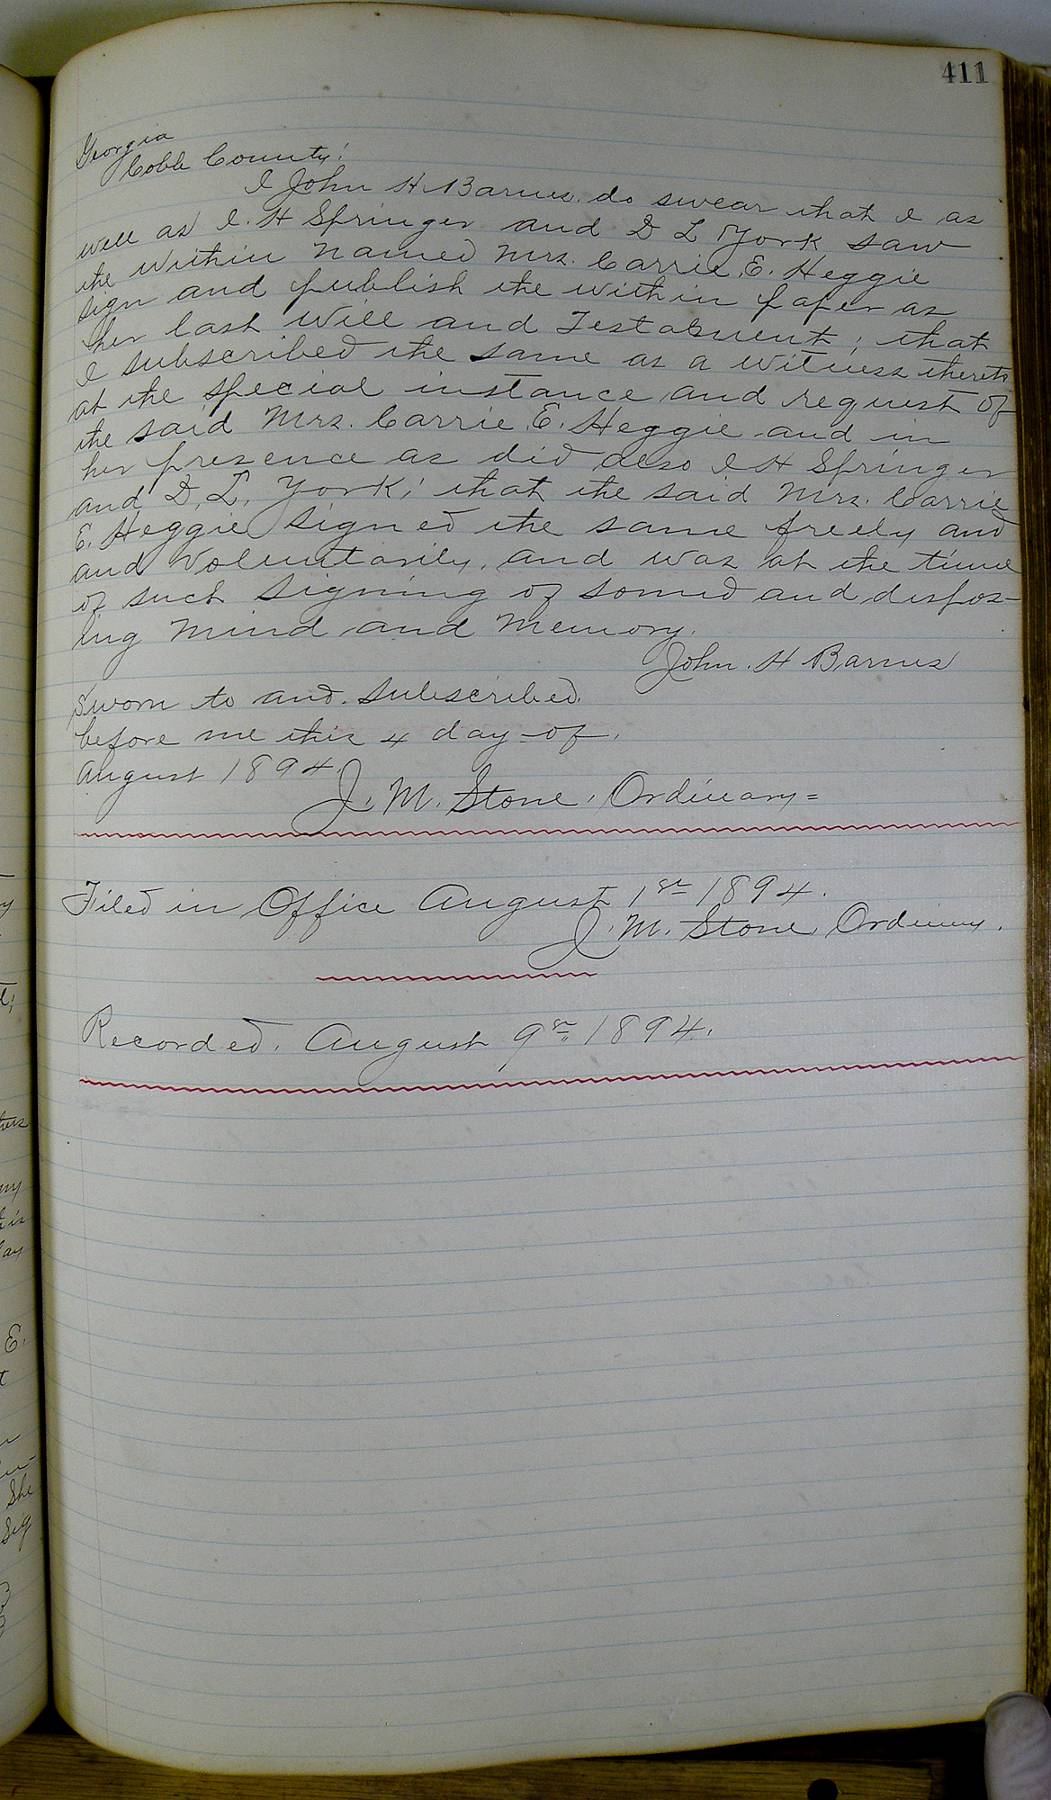 411
Georgia
Cobb County:
I John H. Barnes. do swear that I as
well as I. H Springer and D L York saw
the within named Mrs. Carrie E. Heggie
sign and publish the within paper as
her last will and Testament; that
I subscribed the same as a witness thereto
at the special instance and request of
the said Mrs. Carrie E. Heggie and in
her presence as did also I H Springer
and D. L. York; that the said Mrs. Carrie
E. Heggie signed the same freely and
and voluntarily, and was at the time
of such signing of sound and dispos-
ing mind and memory.
John. H Barnes
Sworn to and. subscribed.
before me this 4 day of.
August 1894
J. M. Stone. Ordinary=
Filed in Office August 1st 1894.
J. M. Stone Ordinary.
Recorded. August 9th 1894.
thers
my
his
day
E.
She
Sig